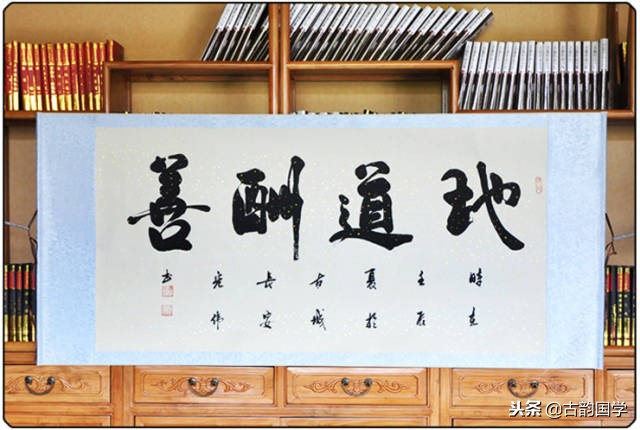 地道酬善
時在
壬辰
夏於
古城
長安
伟
书
头条 @古韵国学